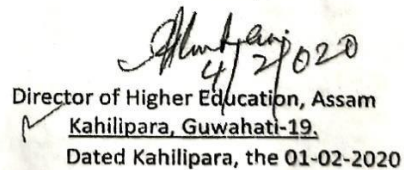 4/2/2020
Director of Higher Education, Assam
Kahilipara, Guwahati-19.
Dated Kahilipara, the 01-02-2020